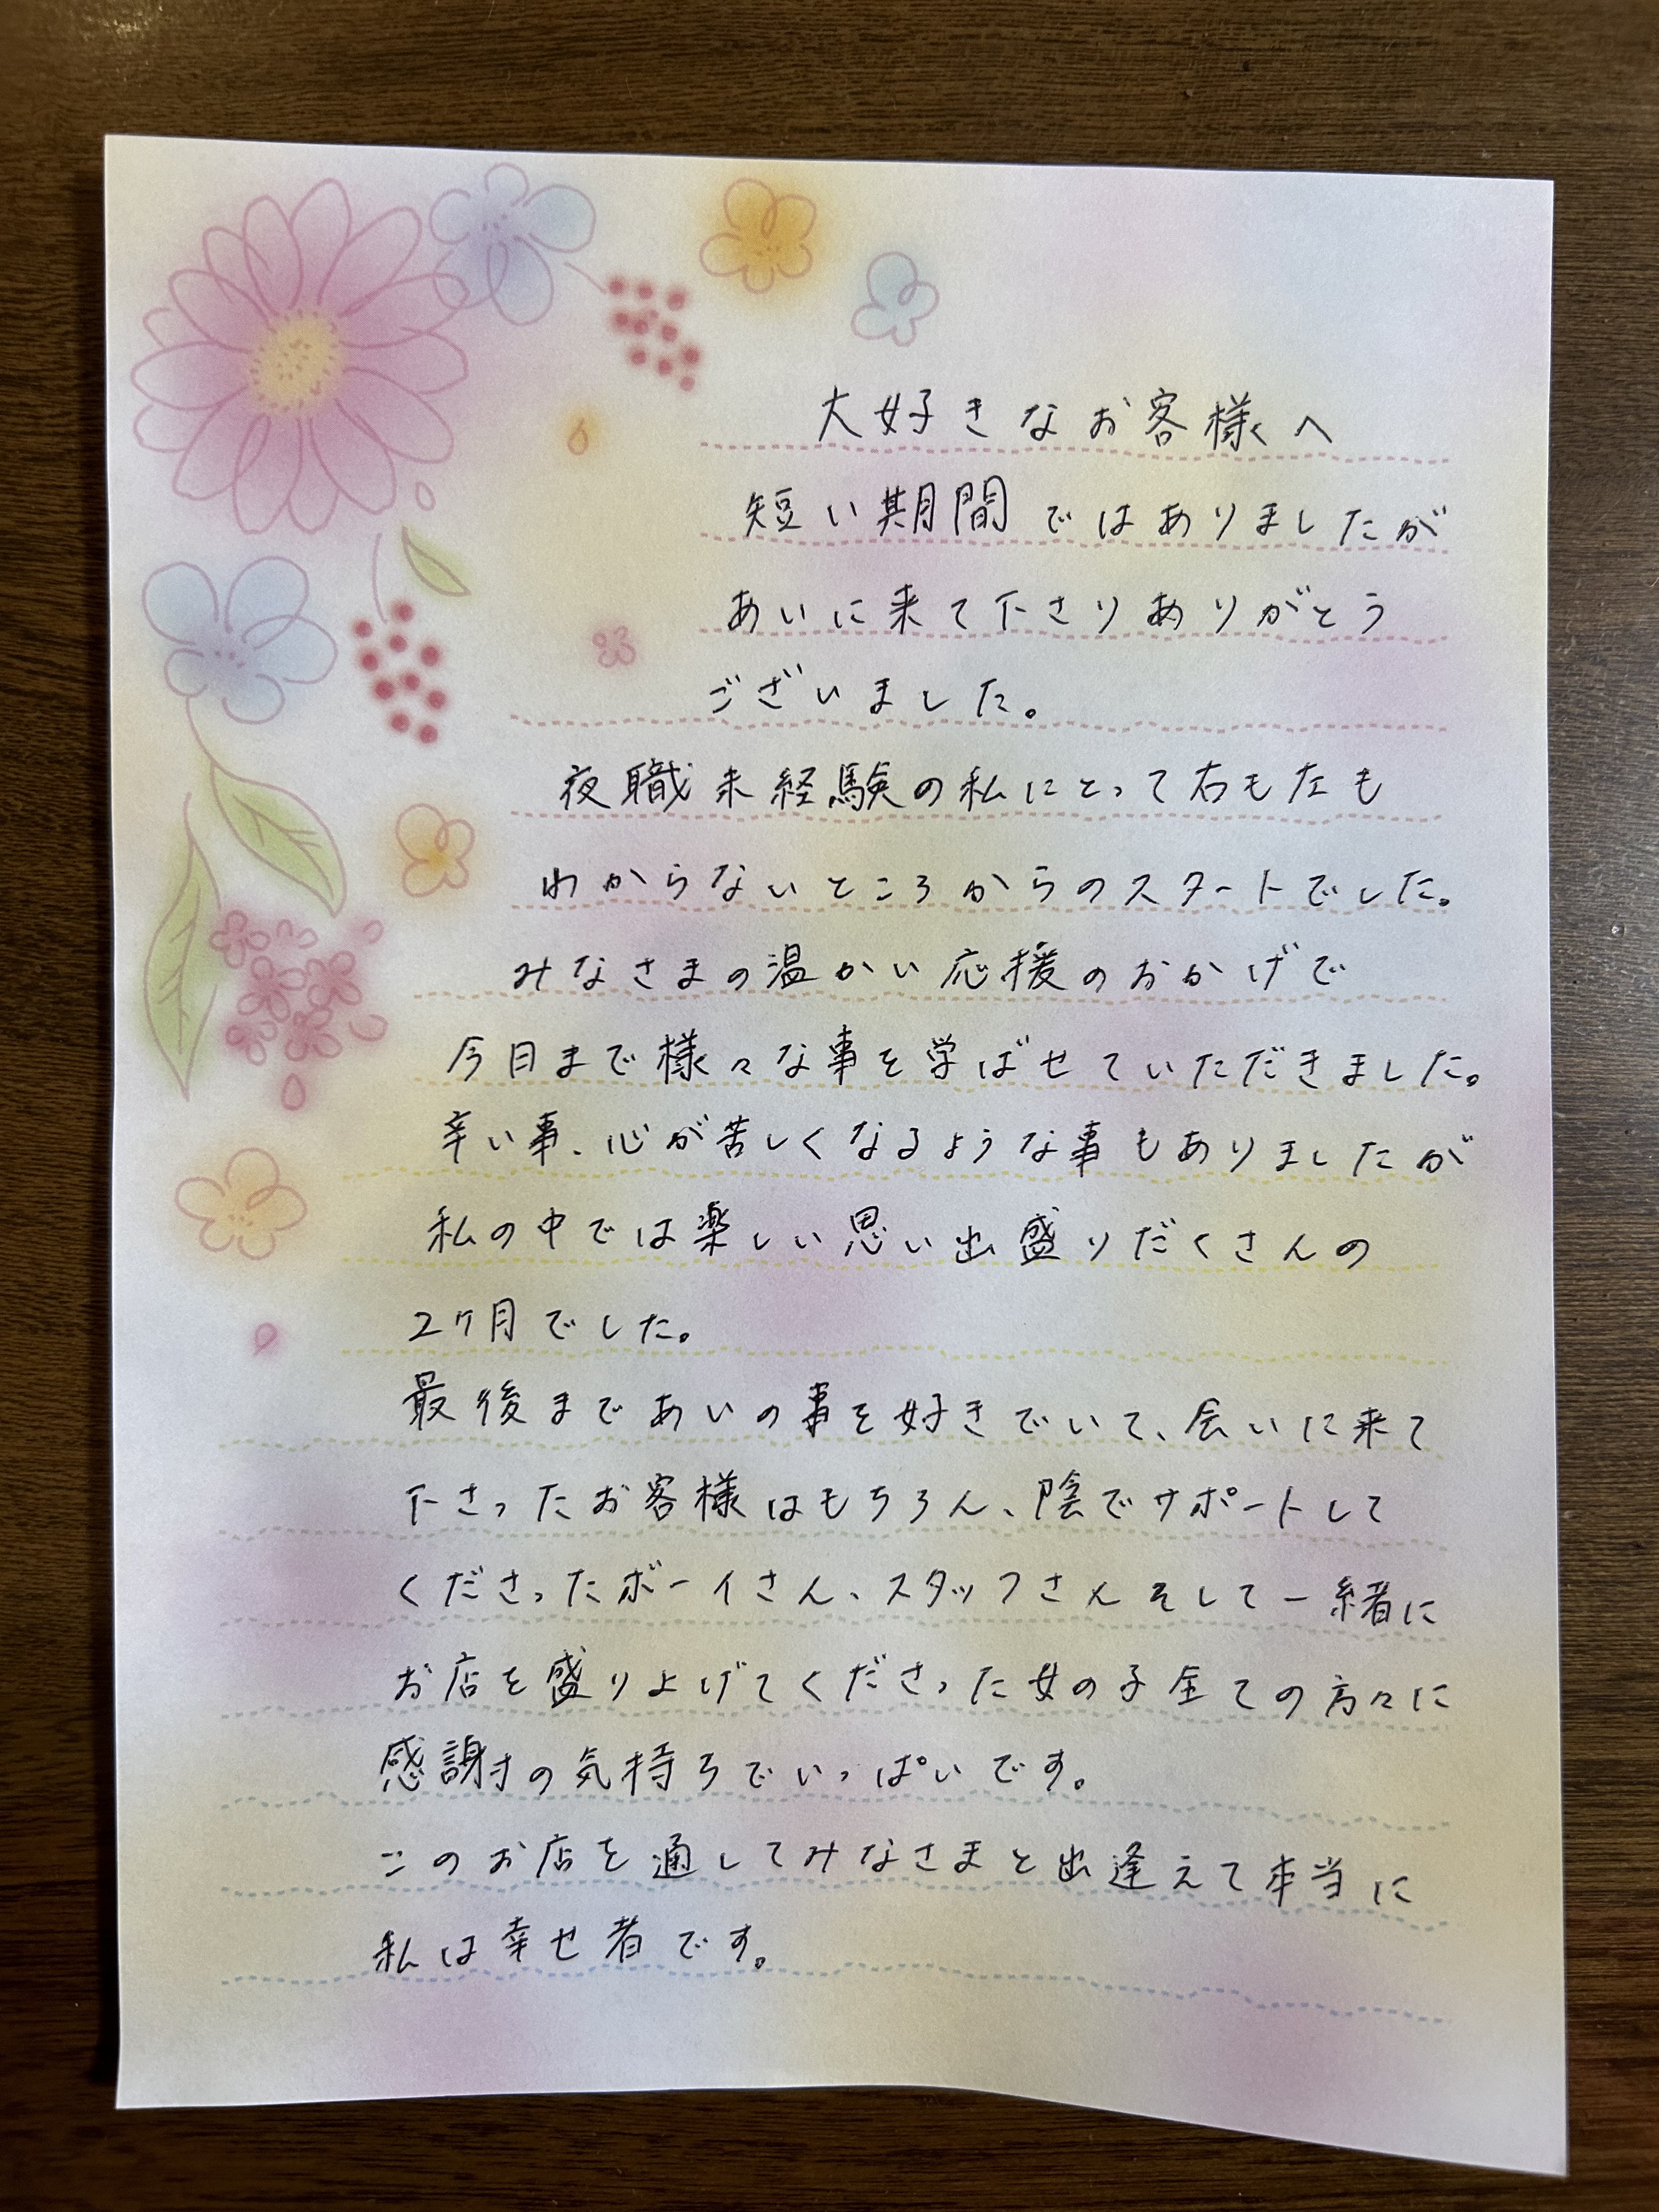 大好きなお客様へ
短い期間ではありましたが
あいに来て下さりありがとう
ございました。
夜職未経験の私にとって右も左も
わからないところからのスタートでした。
みなさまの温かい応援のおかげで
今日まで様々な事を学ばせていただきました。
辛い事、心が苦しくなるような事もありましたが
私の中では楽しい思い出盛りだくさんの
2ヶ月でした。
最後まであいの事を好きでいて、会いに来て
下さったお客様はもちろん、陰でサポートして
くださったボーイさん、スタッフさんそして一緒に
お店を盛り上げてくださった女の子全ての方々に
感謝の気持ちでいっぱいです。
このお店を通してみなさまと出逢えて本当に
私は幸せ者です。